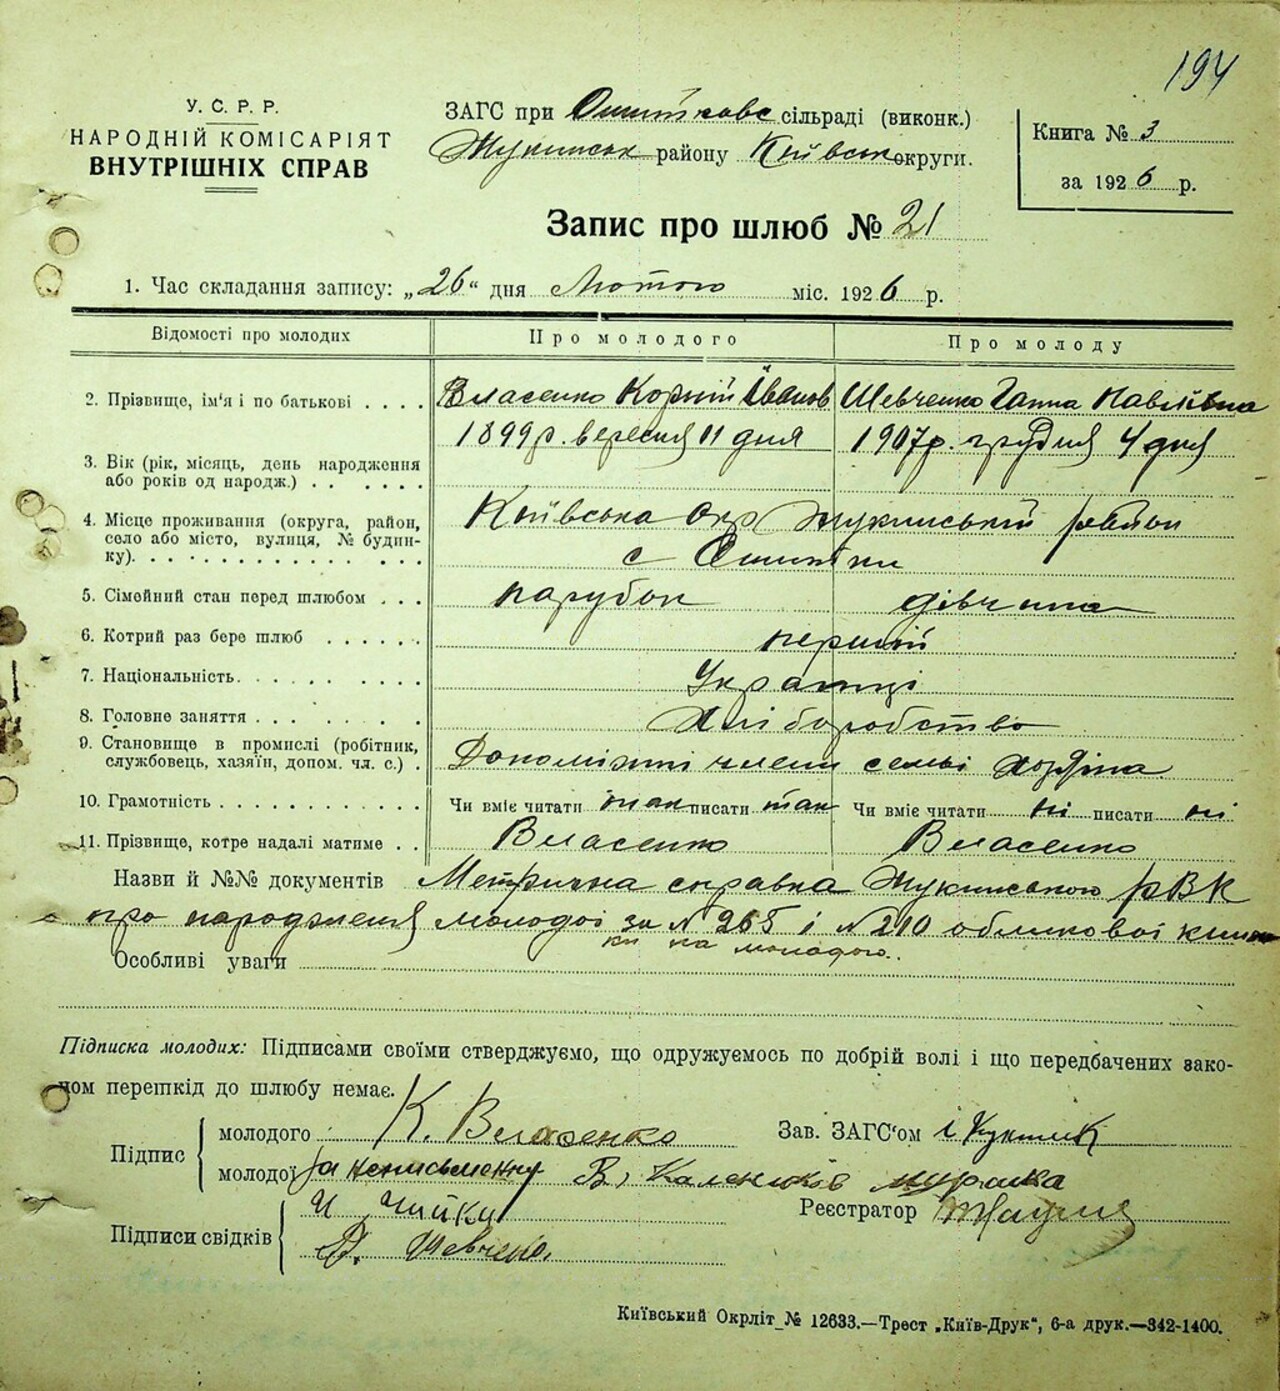 194
У. С. Р. Р.
НАРОДНІЙ КОМІСАРІЯТ
ВНУТРІШНІХ СПРАВ
ЗАГС при Ошитковс сільраді (виконк.)
Жукинськ району Київськ округи.
Книга № 3
за 1926 р.
Запис про шлюб № 21
1. Час складання запису: „26“ дня Лютого міс. 1926 р.
Відомості про молодих Про молодого Про молоду
2. Прізвище, ім'я і по батькові . . . . Власенко Корній Іванов Шевченко Ганна Павлівна
1899р. вересня 11 дня 1907р. грудня 4 дня
3. Вік (рік, місяць, день народження
або років од народж.) . . . . . .
4. Місце проживання (округа, район, Київська Окр Жукинський район
село або місто, вулиця, № будин- с Ошитки
ку). . . . . . . . . . . . . . .
5. Сімейний стан перед шлюбом . . . парубок дівчина
6. Котрий раз бере шлюб . . . . . . перший
7. Національність. . . . . . . . . Українці
8. Головне заняття . . . . . . . Хліборобство
9. Становище в промислі (робітник,
службовець, хазяїн, допом. чл. с.) . Допоміжні члени семьі хазяїна
10. Грамотність . . . . . . . . . . . Чи вміє читати так писати так Чи вміє читати ні писати ні
11. Прізвище, котре надалі матиме . . Власенко Власенко
Назви й №№ документів Метрична справка Жукинського РВК
про народження молодої за № 265 і № 210 обликової книж
ки на молодого.
Особливі уваги
Підписка молодих: Підписами своїми стверджуємо, що одружуємось по добрій волі і що передбачених зако-
ном перешкід до шлюбу немає.
Підпис
молодого К. Власенко Зав. ЗАГС'ом
молодої за неписьменну В,
Підписи свідків
Реєстратор
Шевченко
Київський Окрліт № 12633.—Трест „Київ-Друк“, 6-а друк.—342-1400.